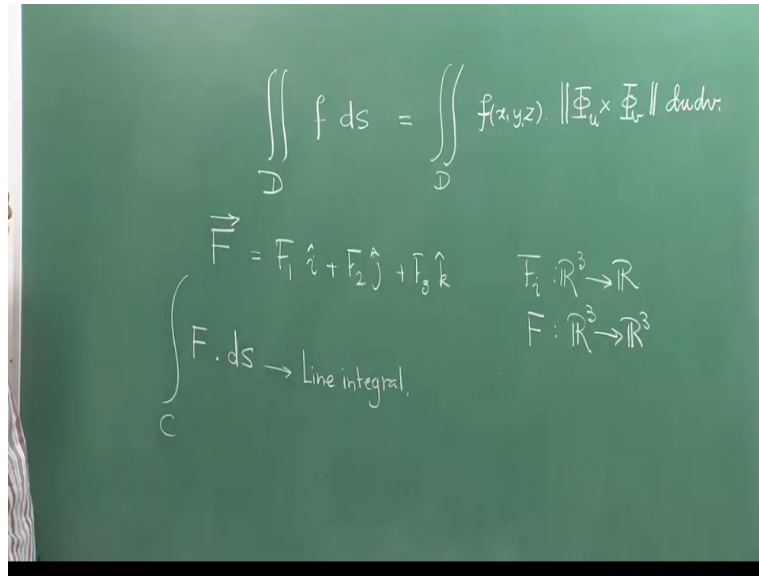 ∬_D f ds = ∬_D f(x,y,z). ‖Φ_u × Φ_v‖ du dv.
F⃗ = F₁ î + F₂ ĵ + F₃ k̂    F_i : ℝ³→ℝ.
F : ℝ³→ℝ³
∫_C F . ds → Line integral.